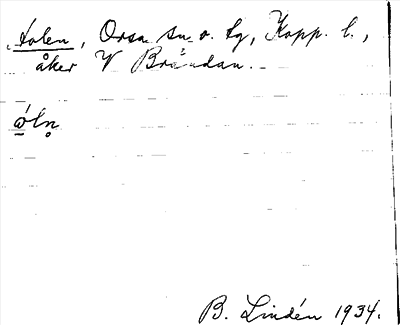 Holen, Orsa sn o. tg, Kopp. l.,
åker V Bråndan.
ώ̱ln̥
B. Lindén 1934.